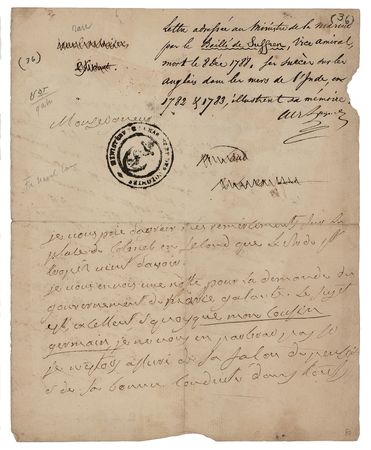 rare
(36)
(36)
Lettre adressée au Ministre de la marine
par le Bailli de Suffren, vice amiral,
mort le 8bre 1788. ses succès sur les
anglais dans les mers de l'Inde, en
1782 & 1783, illustrent sa mémoire
Monseigneur
je vous prie d'agréer mes remerciements sur la
place de Colonel en second que le
vient d'avoir
je vous envoie une note pour la demande du
gouvernement de marie galante. Le sujet
est excellent & quoyque mon cousin
germain je ne vous en parlerai pas si
je n'étois assuré de sa façon de penser
& de sa bonne conduite dans tous